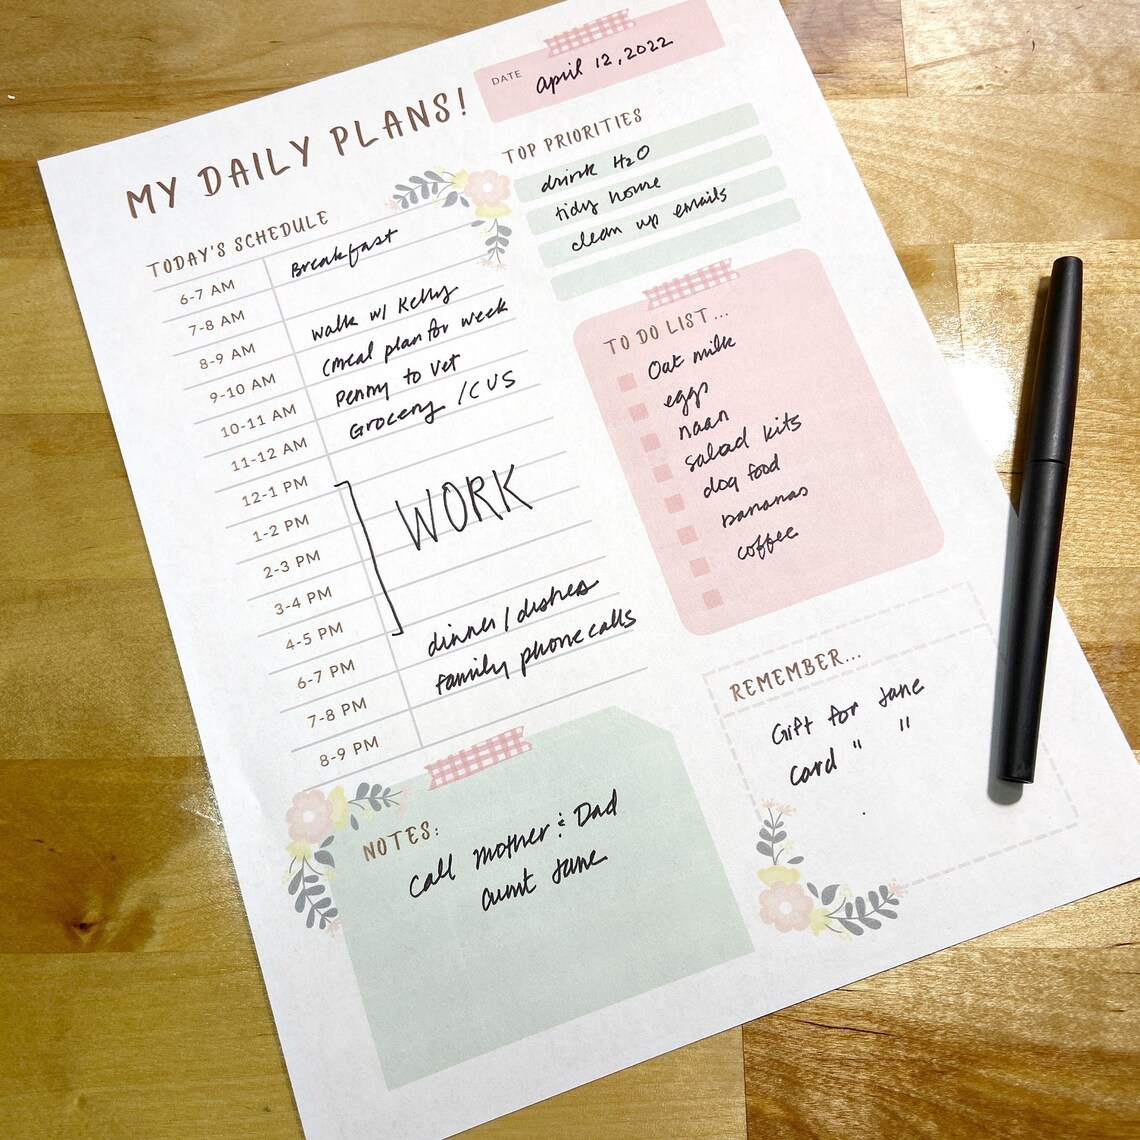 MY DAILY PLANS!
DATE april 12, 2022
TODAY'S SCHEDULE
6-7 AM Breakfast
7-8 AM
8-9 AM walk w/ Kelly
9-10 AM (meal plan for week
10-11 AM Penny to Vet
11-12 AM Grocery / CVS
12-1 PM
1-2 PM WORK
2-3 PM
3-4 PM
4-5 PM
6-7 PM dinner / dishes
7-8 PM family phone calls
8-9 PM
TOP PRIORITIES
drink H2O
tidy home
clean up emails
TO DO LIST...
Oat milk
eggs
naan
salad kits
dog food
bananas
coffee
REMEMBER...
Gift for Jane
Card " "
NOTES:
Call mother & Dad
aunt Jane